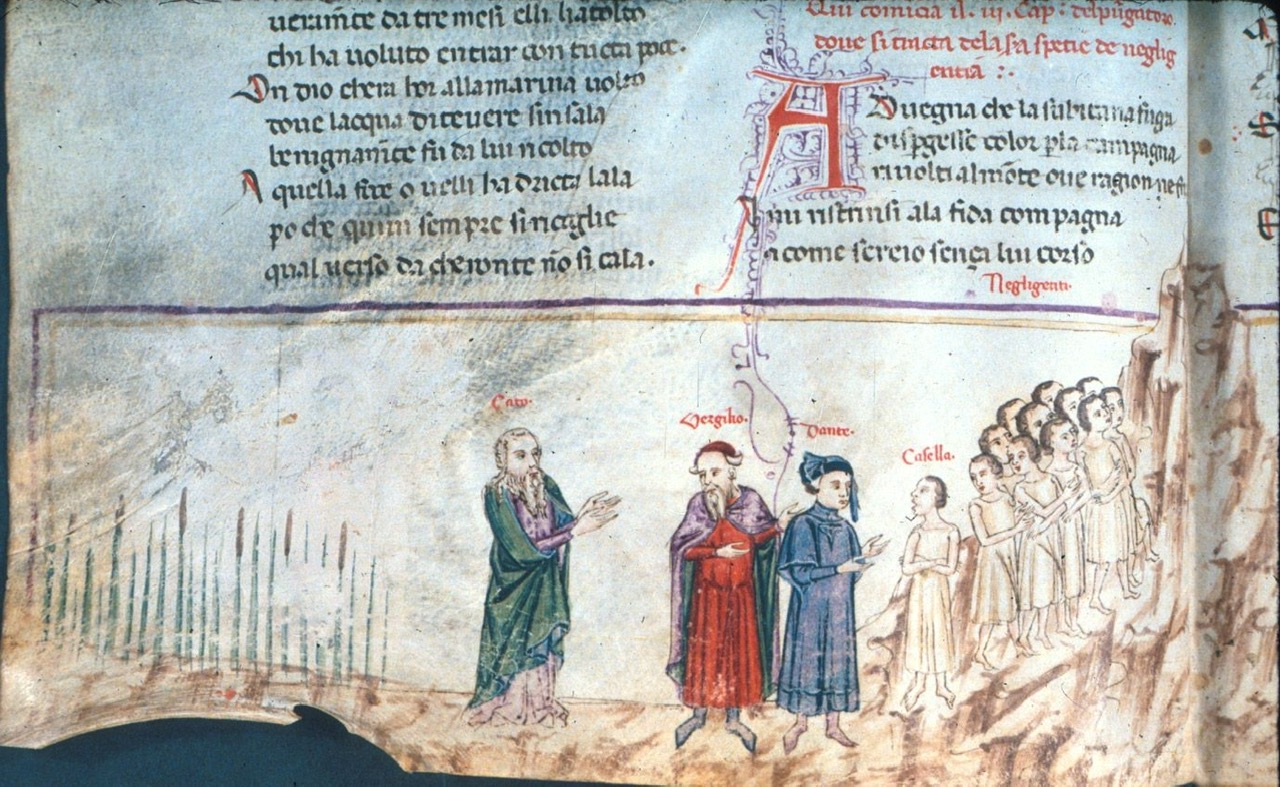 ueram̄te da tre mesi elli ha tolto
chi ha uoluto entrar con tucta pace.
Ond io chera hor alla marina uolto
doue lacqua di teuere sinsala
benignam̄te fu da lui ricolto
A quella fece o uelli ha dricta lala
po che quiui sempre si ricoglie
qual uerso da cheronte nō si cala.
Qui comīcia il. iii. Cap.
doue si tracta de la spetie de neglig
entia :.
Aduegna che la subitana fuga
dispgesse color p la campagna
riuolti al mōte oue ragion
mi ristrinsi ala fida compagna
come sereio sença lui corso
Negligenti.
Cato.
Vergilio.
Dante.
Casella.